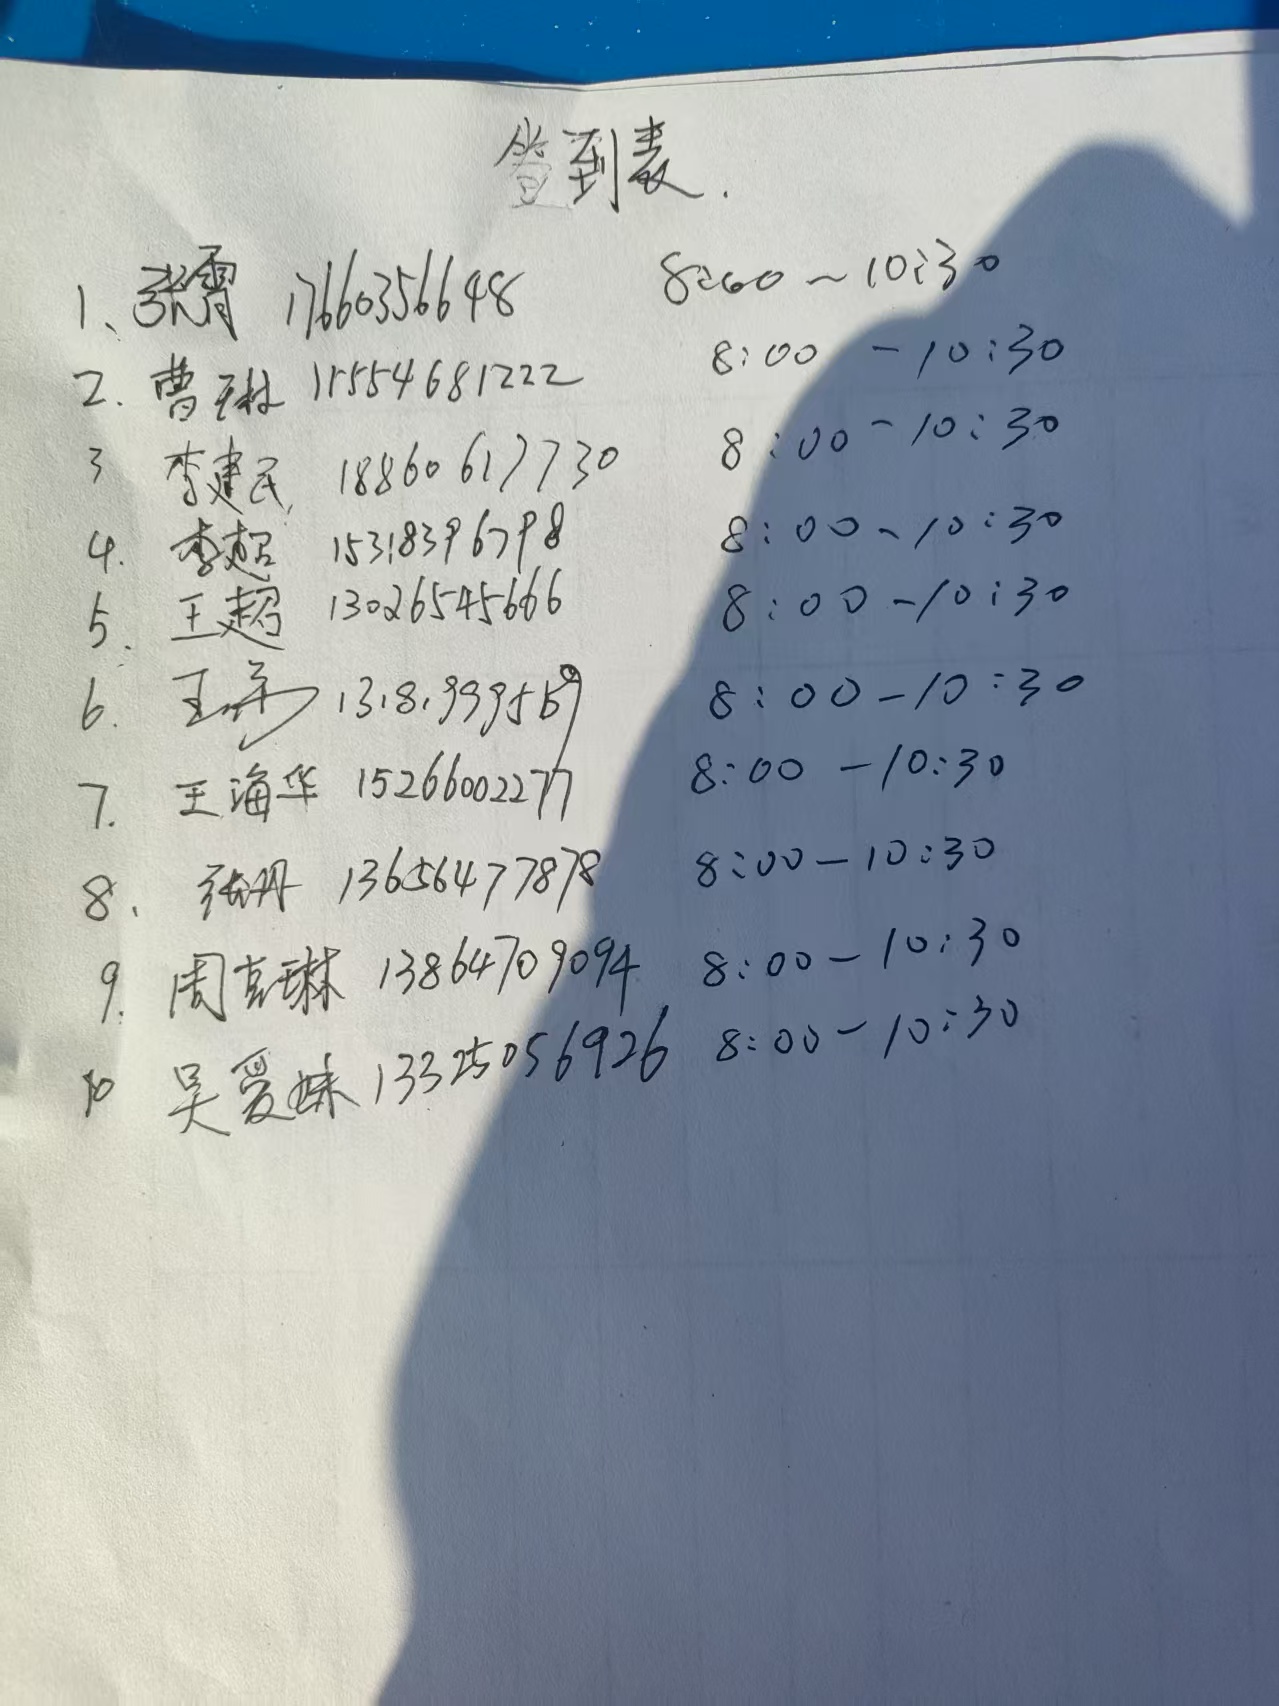 签到表.
1、张霄 17660356648 8:00~10:30
2. 曹琳 15554681222 8:00-10:30
3 李建民 18860617730 8:00-10:30
4. 李超 15318396798 8:00-10:30
5. 王超 13026545666 8:00-10:30
6. 王 8:00-10:30
7. 王海华 15266002277 8:00-10:30
8. 张丹 13656477878 8:00-10:30
9. 周克琳 13864709094 8:00-10:30
10 吴爱妹 13325056926 8:00-10:30